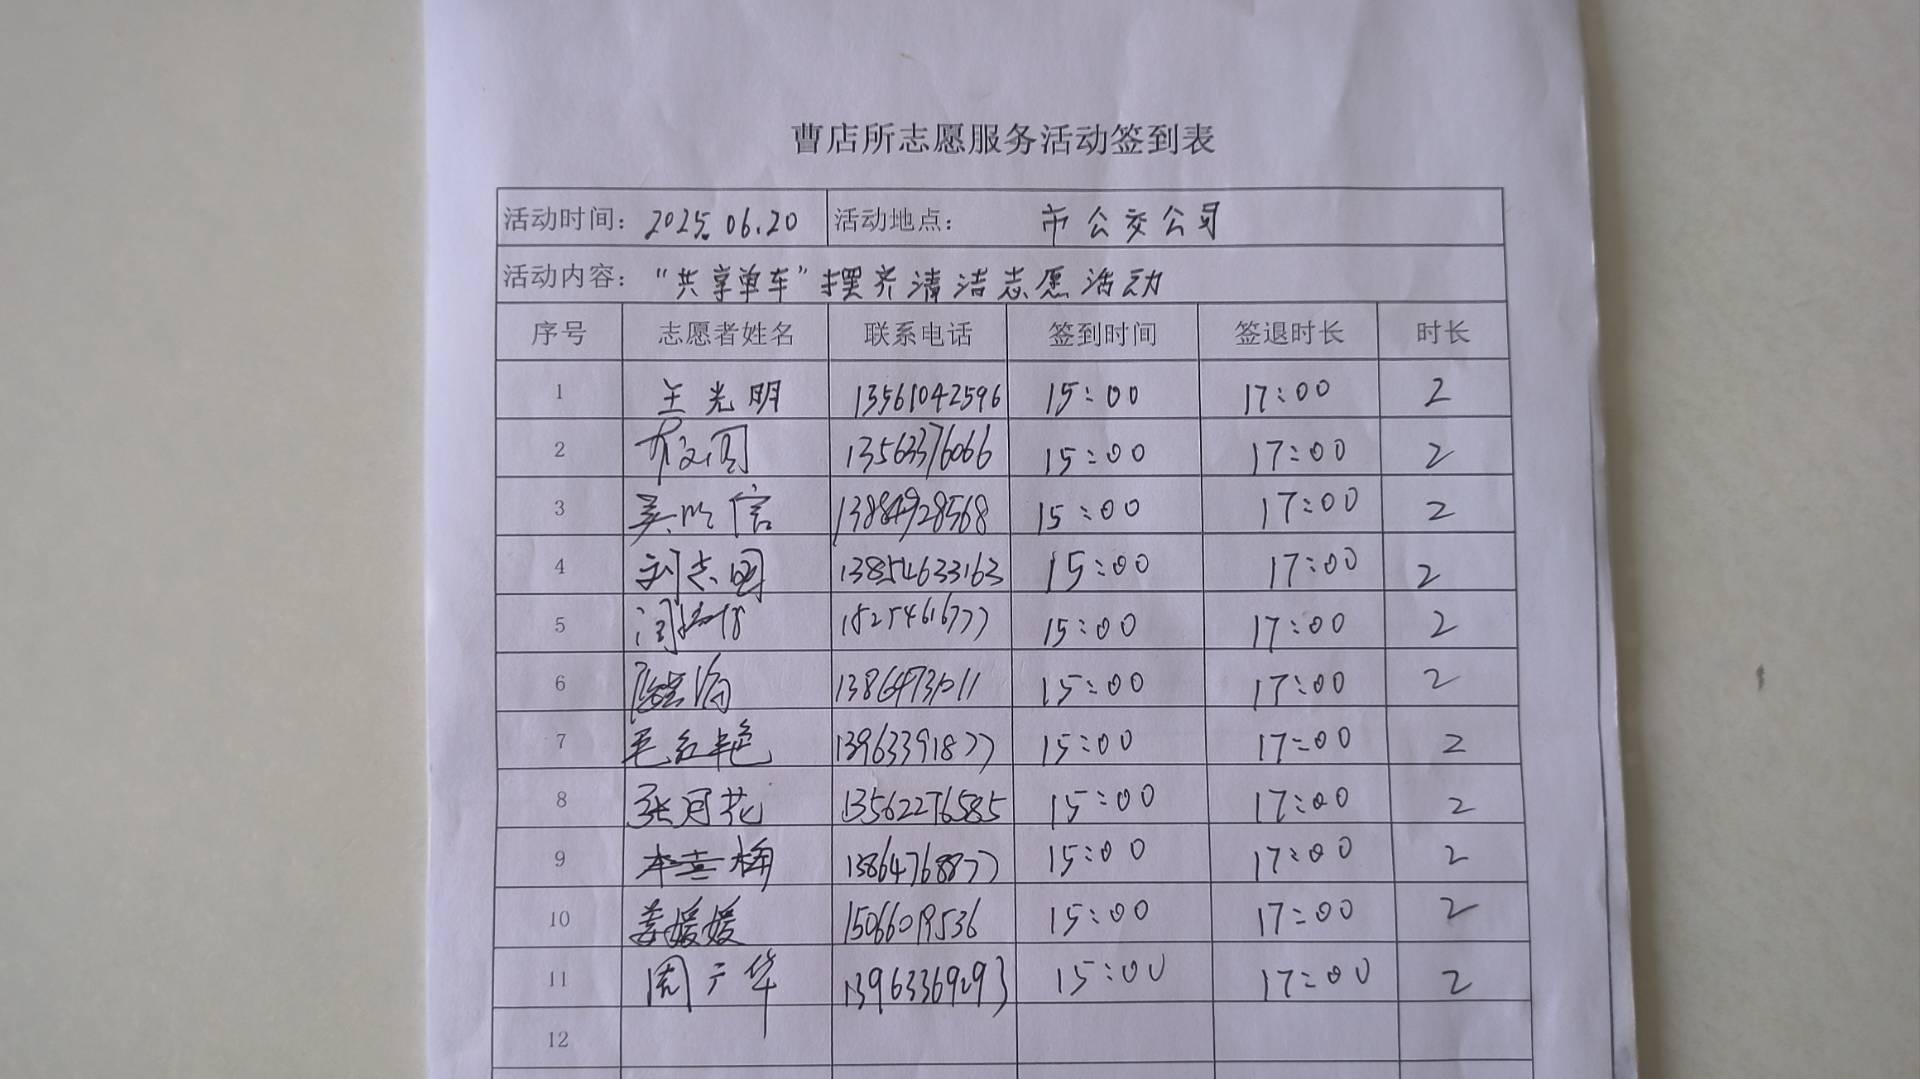 曹店所志愿服务活动签到表
活动时间： 2025.06.20 活动地点： 市公交公司
活动内容： “共享单车”摆齐清洁志愿活动
序号 志愿者姓名 联系电话 签到时间 签退时长 时长
1 王光明 13561042596 15:00 17:00 2
2 13563376066 15:00 17:00 2
3 13884928568 15:00 17:00 2
4 刘志国 13854633163 15:00 17:00 2
5 15:00 17:00 2
6 15:00 17:00 2
7 毛红艳 13963391877 15:00 17:00 2
8 张月花 13562276585 15:00 17:00 2
9 13864768877 15:00 17:00 2
10 姜媛媛 15066019536 15:00 17:00 2
11 周广华 13963369293 15:00 17:00 2
12